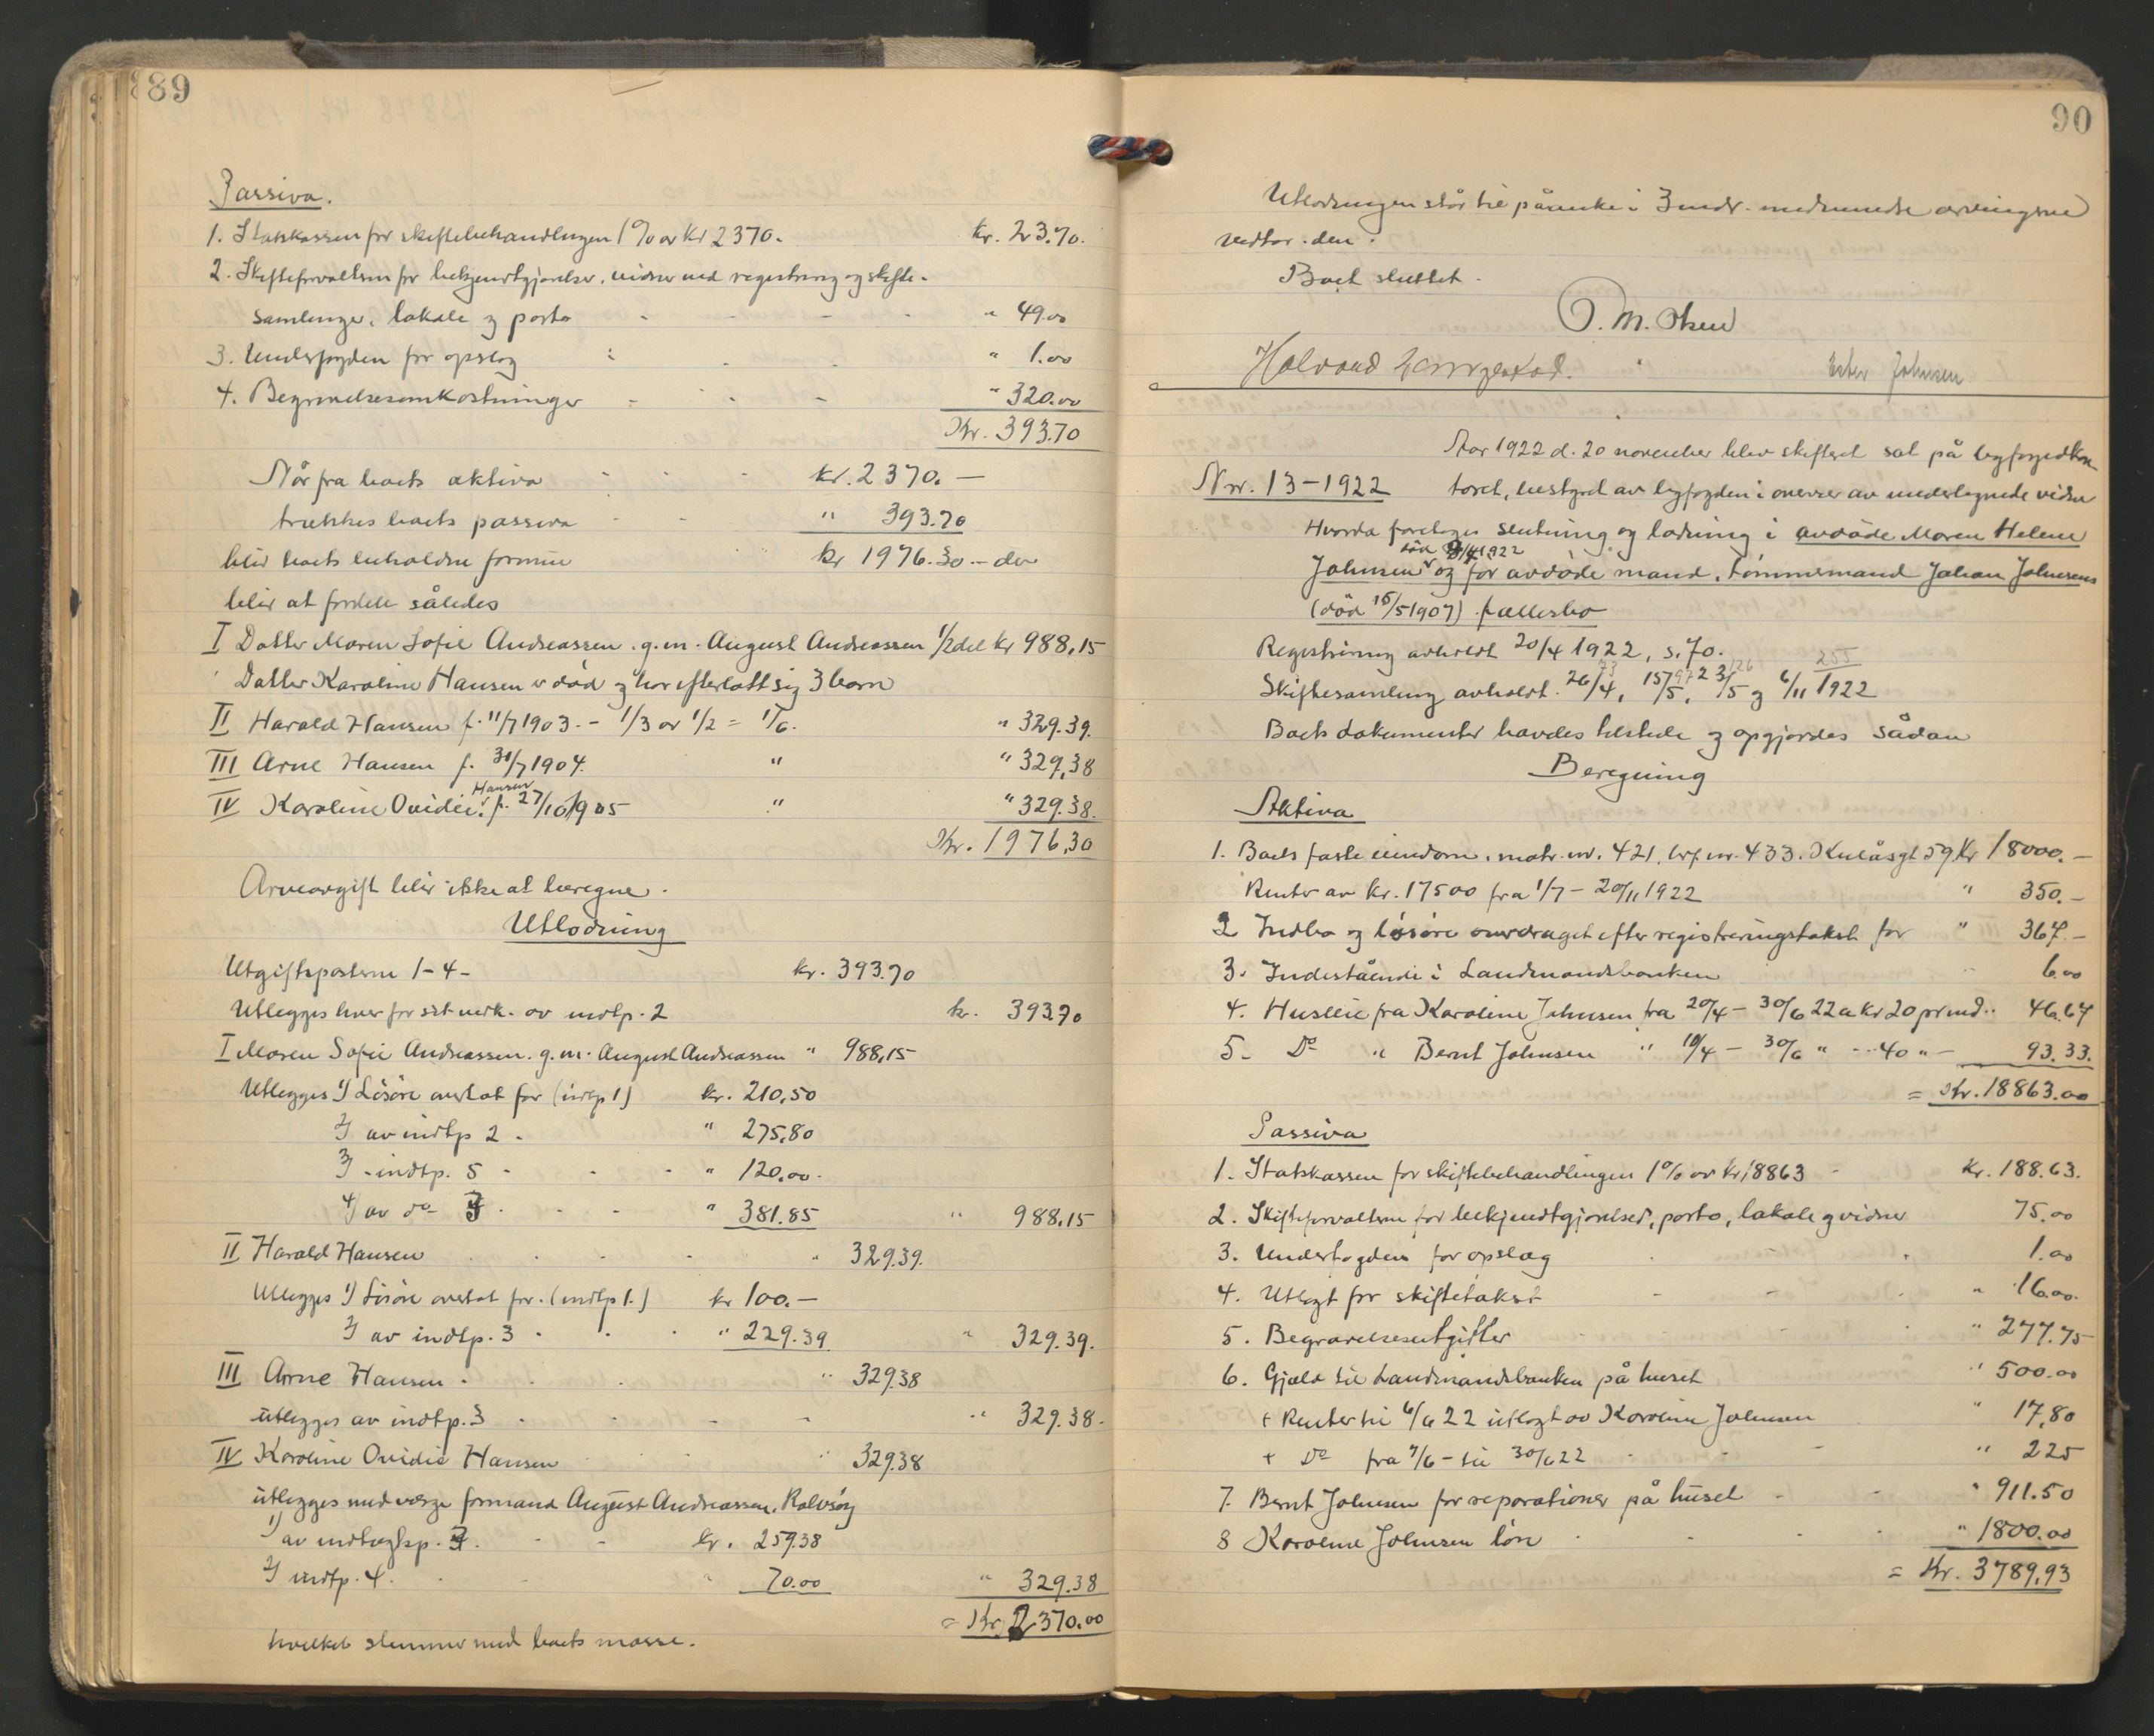 89
Passiva.
1. Statskassen for skiftebehandlingen 1% av kr 2370. kr. 23.70.
2. Skifteforvalteren for bekjendtgjørelser, vidner ved registrering og skifte-
samlinger, lokale og porto " 49.00
3. Underfogden for opslag " 1.00
4. Begravelsesomkostninger " 320.00
Kr. 393.70
Når fra boets aktiva kr. 2370.—
trækkes boets passiva " 393.70
blir boets beholdne formue kr 1976.30 – der
blir at fordele således
I Datter Maren Sofie Andreassen. g.m. August Andreassen 1/2 del kr 988,15
Datter Karoline Hansen er død og har efterlatt sig 3 barn
II Harald Hansen f. 11/7 1903. – 1/3 av 1/2 = 1/6. " 329.39.
III Arne Hansen f. 30/7 1904. " " 329,38
IV Karoline Ovidie Hansen f. 27/10 1905 " " 329.38.
Kr. 1976,30
Arveavgift blir ikke at beregne.
Utlodning
Utgiftsposterne 1-4- kr. 393.70
Utlegges hver for sit vedk. av indtp. 2 kr. 393.70
I Maren Sofie Andreassen. g.m. August Andreassen " 988,15
Utlegges 1) Løsøre overtat for (indtp 1) kr. 210,50
2) av indtp 2. " 275,80
3) - indtp. 5 " 120,00.
4) av do 3 " 381.85 " 988,15
II Harald Hansen " 329.39.
Utlegges 1) Løsøre overtat for. (indtp 1.) kr 100.—
2) av indtp. 3 " 229.39 " 329.39.
III Arne Hansen. " 329.38
utlegges av indtp. 3 " 329.38.
IV Karoline Ovidie Hansen " 329.38
utlegges ved værge formand August Andreassen, Rolvsøy
1) av indtægtsp. 3. kr. 259.38
2) indtp. 4. " 70.00 " 329.38
= Kr. 2370.00
hvilket stemmer med boets masse.
90
Utlodningen står til påanke i 3 mdr. medmindre arvingerne
vedtar den.
Boet sluttet.
O. M. Olsen
Halvard Ester Johnsen
Aar 1922 d. 20 november blev skifteret sat på byfogedkon
Nr. 13–1922 toret, bestyret av byfogden i overvær av undertegnede vidner
Hvorda foretoges slutning og lodning i avdøde Maren Helene
død 9/4 1922
Johnsen og før avdøde mand, tømmermand Johan Johnsens
(død 15/5 1907) fællesbo
Registrering avholdt 20/4 1922, s. 70.
Skiftesamling avholdt 26/4, 15/5, 3/5 og 6/11 1922
Boets dokumenter havdes tilstede og opgjordes sådan
Beregning
Aktiva
1. Boets faste eiendom. matr. nr. 421, brf. nr. 433. Kulåsgt 59 Kr 18000.—
Renter av kr. 17500 fra 1/7 – 20/11 1922 " 350.—
2 Indbo og løsøre overdraget efter registreringstakst for " 367.—
3. Indestående i Landmandsbanken 6.00
4. Husleie fra Karoline Johnsen fra 20/4 – 30/6 22 a kr 20 pr md.. 46.67
5. Do " Bernt Johnsen " 10/4 – 30/6 " .. 40 " – 93.33.
= Kr. 18863.00
Passiva
1. Statskassen for skiftebehandlingen 1% av kr 18863 kr. 188.63.
2. Skifteforvalteren for bekjendtgjørelser, porto, lokale og vidner 75.00
3. Underfogden for opslag 1.00
4. Utlagt for skiftetakst " 16.00.
5. Begravelsesutgifter " 277.75
6. Gjæld til Landmandsbanken på huset " 500.00
+ Renter til 6/6 22 utlagt av Karoline Johnsen " 17,80
+ Do fra 7/6 – til 30/6 22 " 225
7. Bernt Johnsen for reparationer på huset " 911.50
8 Karoline Johnsen løn " 1800.00
= Kr. 3789,93